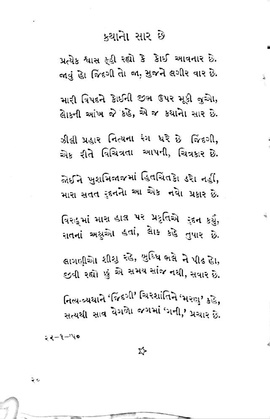 કથાનો સાર છે
પ્રત્યેક શ્વાસ કહી રહ્યો કે કોઈ આવનાર છે.
જાવું હો જિંદગી તો જા, મુજને લગીર વાર છે.
મારી વિપદને કોઈની જીભ ઉપર મૂકી જુઓ,
લોકની આંખ જે કહે, એ જ કથાનો સાર છે.
ઝીલી પ્રહાર નિત્યના રંગ ધરે છે જિંદગી,
એક રીતે વિચિત્રતા આપની, ચિત્રકાર છે.
જોઈને ખુશમિજાજમાં હિતચિંતકો હસો નહીં,
મારા સતત રુદનનો આ એક નવો પ્રકાર છે.
વિરહમાં મારા હાલ પર પ્રકૃતિએ રુદન કર્યું,
રાતનાં અશ્રુઓ હતાં, લોક કહે તુષાર છે.
લાગણીઓ શીશુ રહે, બુધ્ધિ ભલે ને પીઢ હો,
જીવી રહ્યો છું એ સમય સાંજ નથી, સવાર છે.
નિત્ય-વ્યથાને 'જિંદગી' ચિરશાંતિને 'મરણ' કહે,
સત્યથી સાવ વેગળો જગમાં 'ગની,' પ્રચાર છે.
૨૮